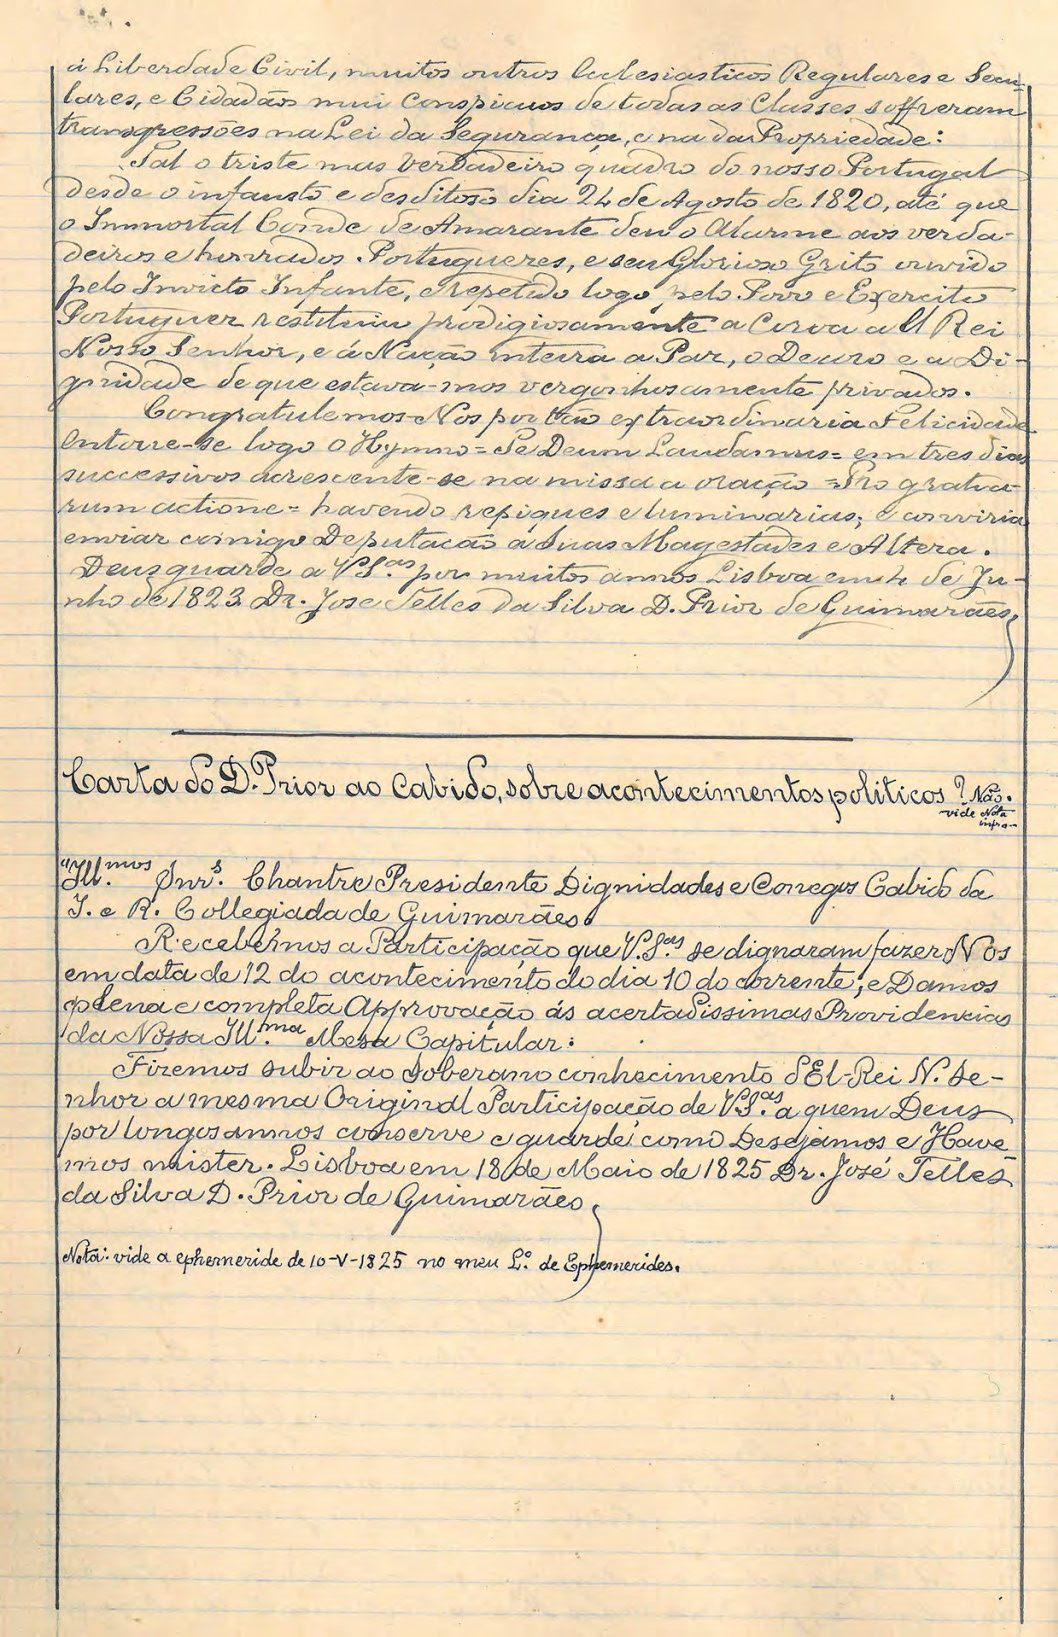 á Liberdade Civil, muitos outros Ecclesiasticos Regulares e Secu-
lares, e Cidadãos mui Conspicuos de todas as Classes soffreram
transgressões na Lei da Segurança, e na da Propriedade:
Tal o triste mas verdadeiro quadro do nosso Portugal
desde o infausto e desditoso dia 24 de Agosto de 1820, até que
o Immortal Conde de Amarante deu o Alarme aos verda-
deiros e honrados Portuguezes, e seu Glorioso Grito ouvido
pelo Invicto Infante, e repetido logo pelo Povo e Exercito
Portuguez restituiu prodigiosamente a Coroa a El Rei
Nosso Senhor, e á Nação inteira a Paz, o Decoro e a Di-
gnidade de que estava-mos vergonhosamente privados.
Congratulemos-Nos por tão extraordinaria Felicidade
Entoe-se logo o Hymno = Te Deum Laudamus = em tres dias
successivos acrescente-se na missa a oração = Pro gratia-
rum actione = havendo repiques e luminarias; e conviria
enviar comigo Deputação a Suas Magestades e Alteza.
Deus guarde a V.S.as por muitos annos Lisboa em 4 de Ju-
nho de 1823 Dr. Jose Telles da Silva D. Prior de Guimarães
Carta do D. Prior ao Cabido, sobre acontecimentos politicos ? Não.
vide Nota
infra-
"Ill.mos Snrs. Chantre Presidente Dignidades e Conegos Cabido da
I. e R. Collegiada de Guimarães.
Recebemos a Participação que V.S.as se dignaram fazer Nos
em data de 12 do acontecimento do dia 10 do corrente; e Damos
plena e completa Approvação ás acertadissimas Providencias
da Nossa Ill.ma Mesa Capitular:
Fizemos subir ao Soberano conhecimento d'El-Rei N. Se-
nhor a mesma Original Participação de V.S.as a quem Deus
por longos annos conserve e guarde, como Desejamos e Have-
mos mister. Lisboa em 18 de Maio de 1825 Dr. José Telles
da Silva D. Prior de Guimarães
Nota: vide a ephemeride de 10-V-1825 no meu L.º de Ephemerides.